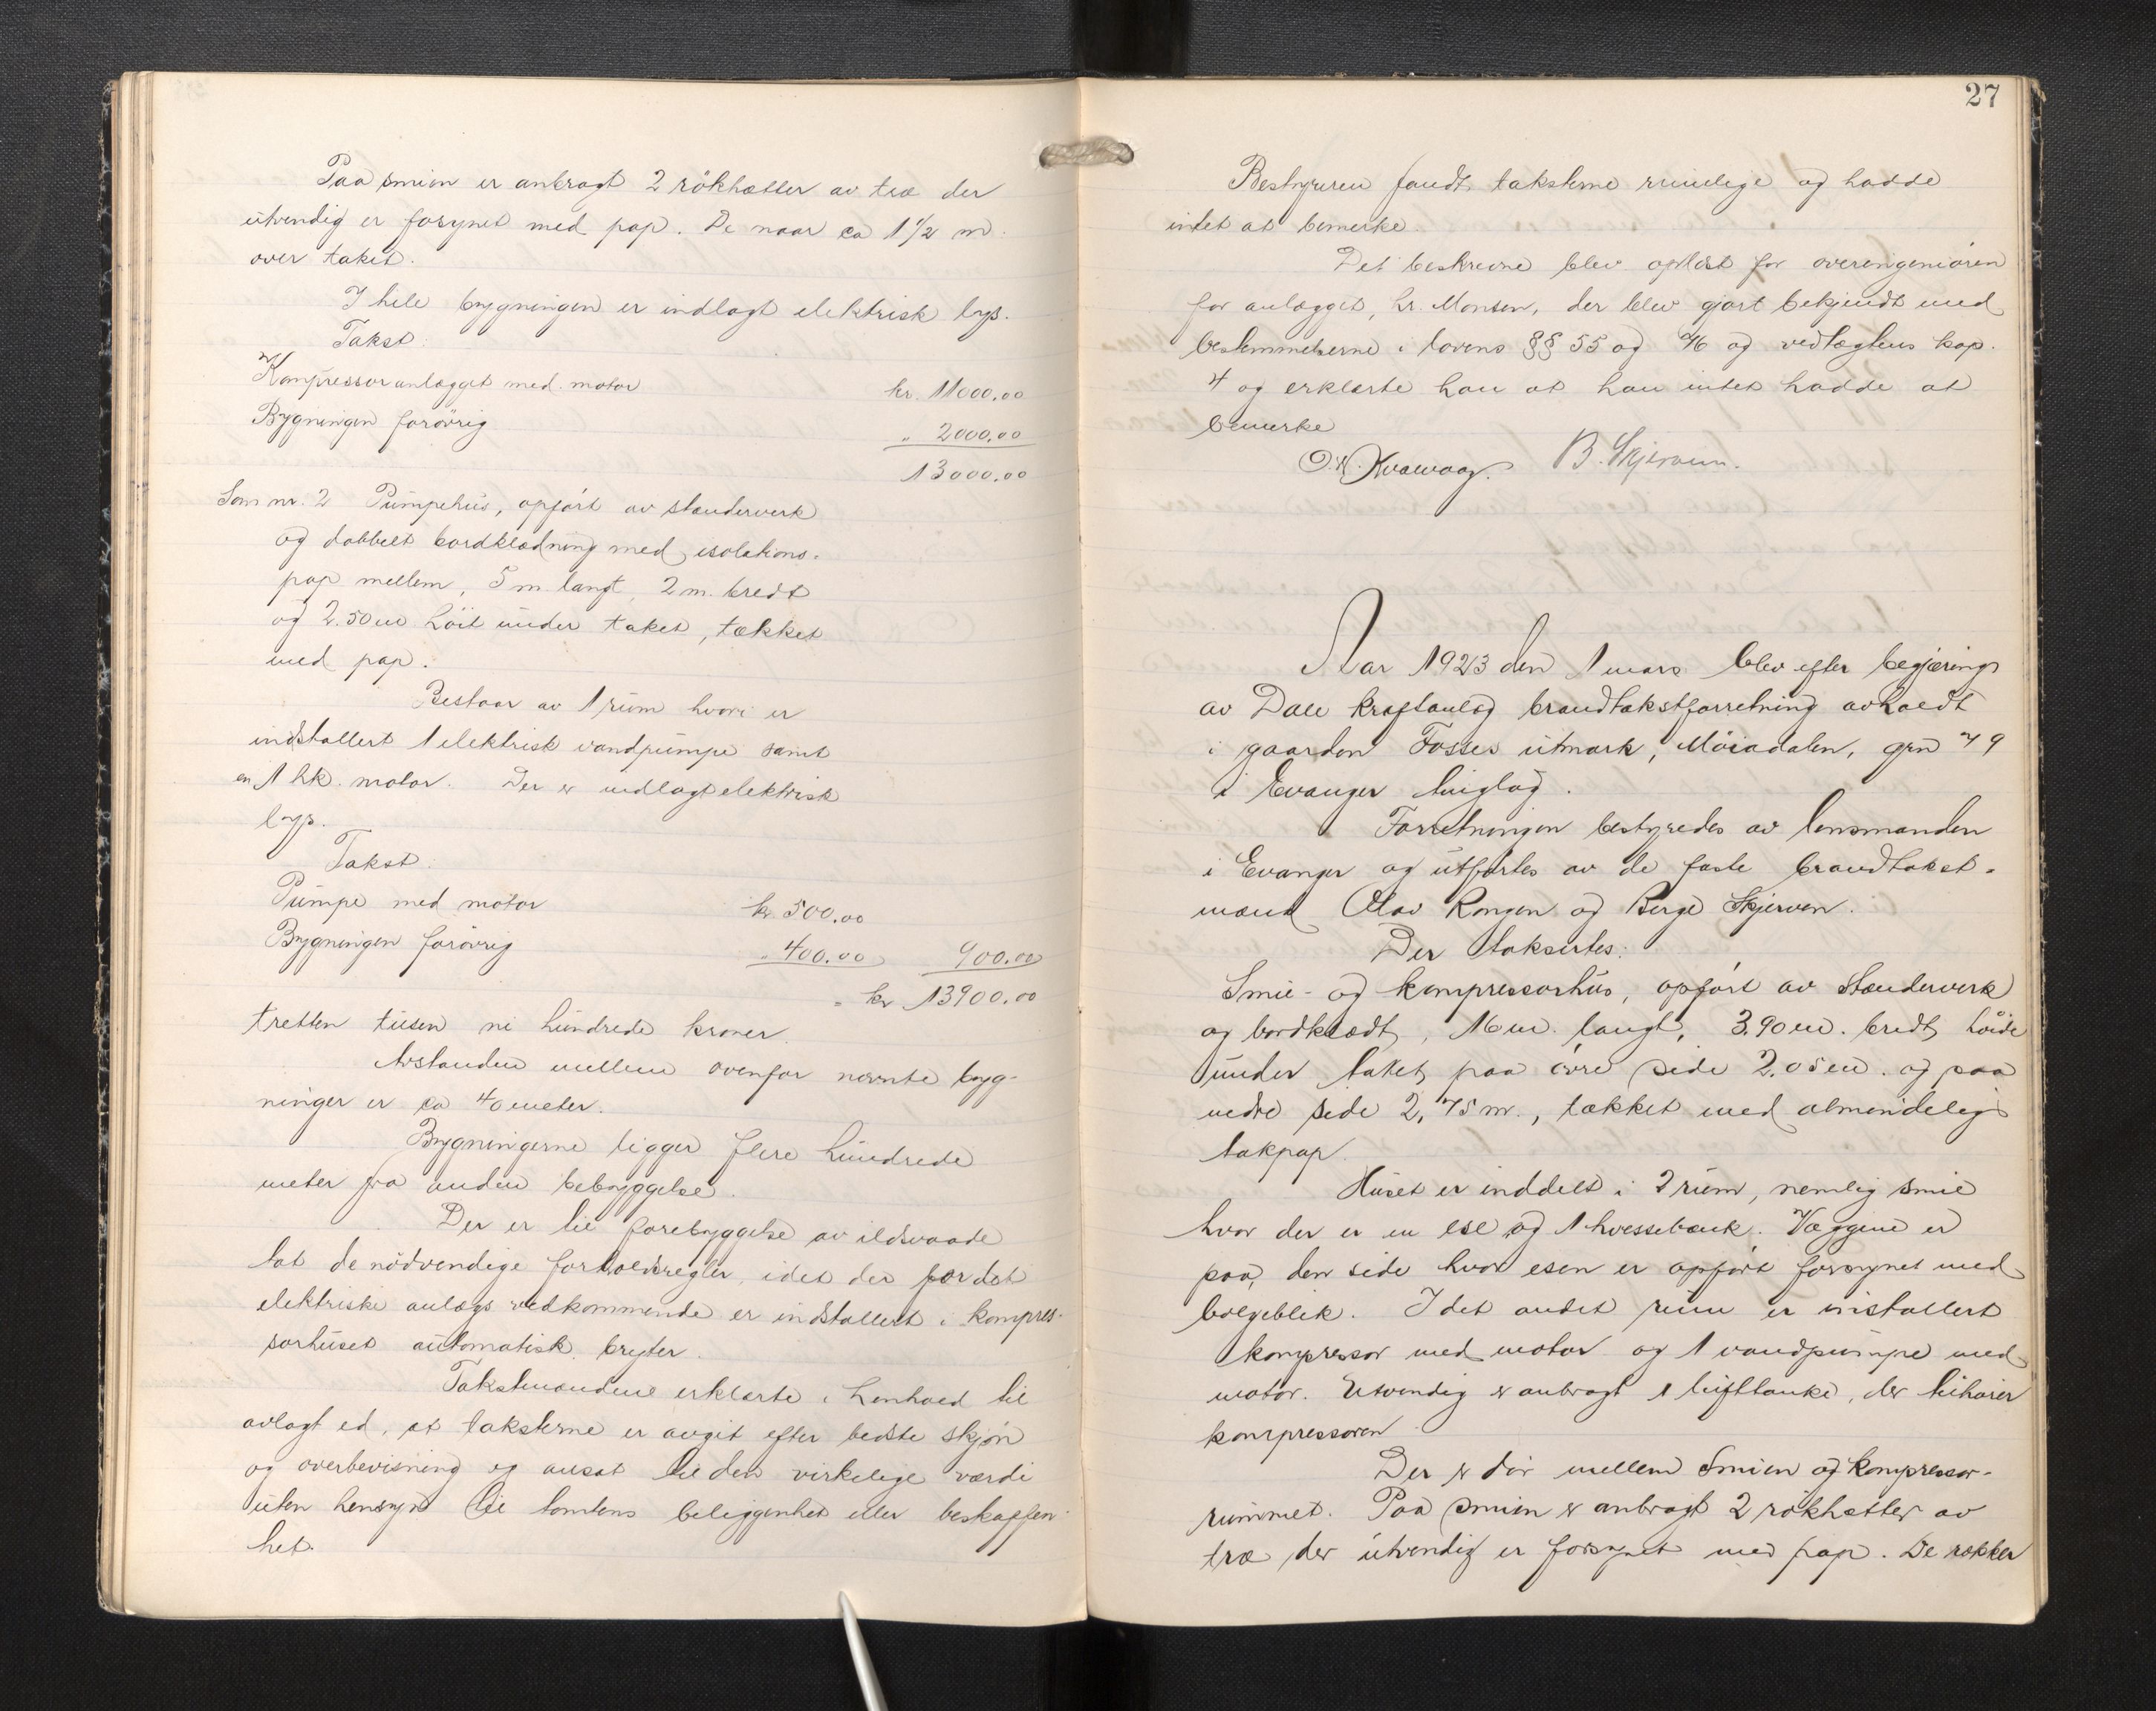 Paa smien er anbragt 2 rökhætter av træ der
utvendig er forsynet med pap. De naar ca 1 1/2 m.
over taket.
I hele bygningen er indlagt elektrisk lys.
Takst:
Kompressoranlægget med motor kr. 11000.00
Bygningen forövrig " 2000.00
13000.00
Som nr. 2 Pumpehus, opfört av stænderverk
og dobbelt bordklædning med isolations-
pap mellem, 5 m langt, 2 m. bredt
og 2.50 m höit under taket, tækket
med pap.
Bestaar av 1 rum hvori er
indstallert 1 elektrisk vandpumpe samt
en 1 hk. motor. Der er indlagt elektrisk
lys.
Takst:
Pumpe med motor kr. 500.00
Bygningen forövrig " 400.00 900.00
= kr 13900.00
tretten tusen ni hundrede kroner.
Avstanden mellem ovenfor nævnte byg-
ninger er ca 40 meter.
Bygningerne ligger flere hundrede
meter fra anden bebyggelse.
Der er til forebyggelse av ildsvaade
tat de nödvendige forholdsregler, idet der for det
elektriske anlægs vedkommende er indstallert i kompres-
sorhuset automatisk bryter.
Takstmændene erklærte i henhold til
avlagt ed, at taksterne er avgit efter bedste skjön
og overbevisning og ansat til den virkelige værdi
uten hensyn til tomtens beliggenhet eller beskaffen-
het.
27
Bestyreren fandt taksterne rimelige og hadde
intet at bemerke
Det beskrevne blev oplæst for overingeniören
for anlægget, hr. Monsen, der blev gjort bekjendt med
bestemmelserne i lovens §§ 55 og 76 og vedtægtens kap.
4 og erklærte han at han intet hadde at
bemerke
B. Skjerven.
Aar 1923 den 1 mars blev efter begjæring
av Dale kraftanlæg brandtakstforretning avholdt
i gaarden Fosses utmark, Möiadalen, grn 79
i Evanger tinglag.
Forretningen bestyredes av lensmanden
i Evanger og utförtes av de faste brandtakst-
mænd Olav Rongen og Berge Skjerven.
Der taksertes:
Smie- og kompressorhus, opfört av Stænderverk
og bordklædt, 16 m. langt, 3.90 m. bredt, höide
under taket paa övre side 2.05 m. og paa
nedre side 2,75 m., tækket med almindelig
takpap.
Huset er inddelt i 2 rum, nemlig smie
hvor der er en ese og 1 hvessebænk. Væggene er
paa den side hvor esen er opfört forsynet med
bølgeblik. I det andet rum er installert
kompressor med motor og 1 vandpumpe med
motor. Utvendig er anbragt 1 lufttanke, der tilhører
kompressoren
Der er dör mellem Smien og kompressor-
rummet. Paa smien er anbragt 2 rökhætter av
træ der utvendig er forsynet med pap. De rækker